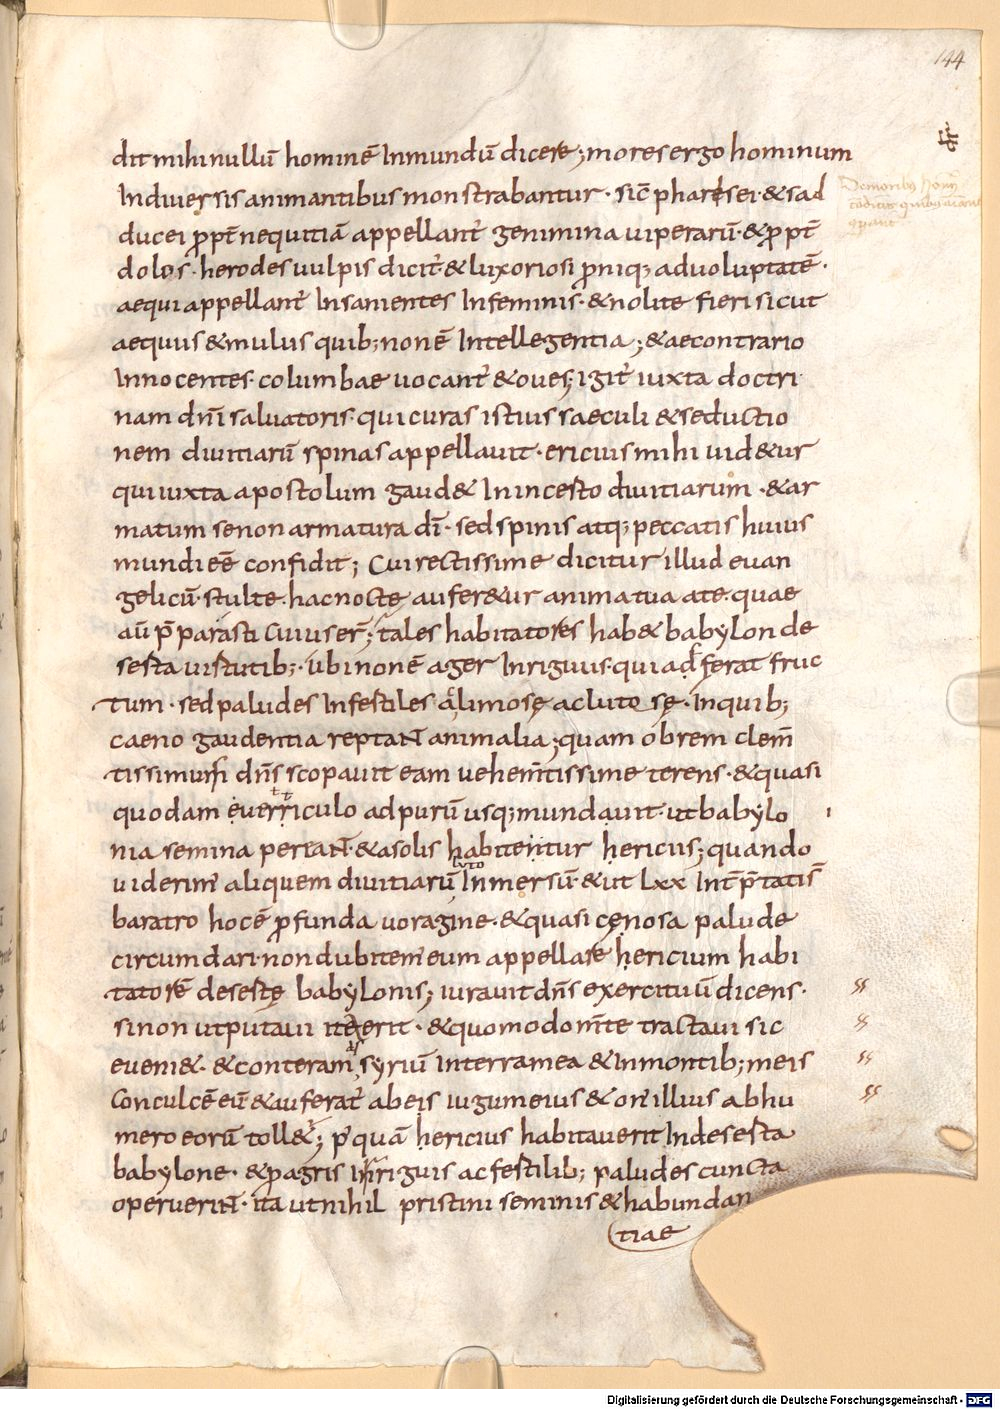 144
dit mihi nullū hominē Inmundū dicere; mores ergo hominum
Indiuersis animantibus monstrabantur · sic̄ pharisei · & sad
ducei ꝓpt̄ nequitiā appellant̄ genimina uiperarū · & ꝓpt̄
dolos · herodes uulpis dicit̄ & luxoriosi ꝓniq; aduoluptatē ·
aequi appellant̄ Insanientes Infeminis · & nolite fieri sicut
aequus & mulus quib; nonē Intellegentia ; & aecontrario
Innocentes · columbae uocant̄ & oues ; igit̄ iuxta doctri
nam dn̄i saluatoris · qui curas istius saeculi & seductio
nem diuitiarū spinas appellauit · ericius mihi uid&ur
qui iuxta apostolum gaud& In incesto diuitiarum · & ar
matum se non armatura dī · sed spinis atq; peccatis huius
mundi eē confidit ; Cui rectissime dicitur illud euan
gelicū · stulte · hac nocte aufer&ur anima tua ate · quae
aū p̄parasti cuius er̄ ; tales habitatores hab& babylon de
serta uirtutib; · ubi nonē ager Inriguus · qui adferat fruc
tum · sed paludes Infertiles limosę ac lutosę · In quib;
caeno gaudentia reptant animalia ; quam obrem clem̄
tissimus dn̄s scopauit eam uehem̄tissime terens · & quasi
quodam euerriculo ad purū usq; mundauit · ut babylo
nia semina pereant · & a solis habitentur hericiis ; quando
uiderim̄ aliquem diuitiarū luto Inmersū · & ut Lxx Int̄p̄tatis̄
baratro hocē ꝓfunda uoragine · & quasi cęnosa palude
circumdari · non dubitem̄ eum appellare hericium habi
tatorē desertę babylonis ; iurauit dn̄s exercituū dicens ·
si non ut putaui ita erit · & quomodo m̄te tractaui sic
eueni& · & conteram assyriū Interra mea & Inmontib; meis
Conculcē eū & auferat̄ ab eis iugum eius & on̄ illius ab hu
mero eorū toll&̄ ; pꝰquā hericius habitauerit Indeserta
babylone · & ꝓ agris Irriguis ac fertilib; paludes cuncta
operuerint · ita ut nihil pristini seminis & habundan
tiae
Digitalisierung gefördert durch die Deutsche Forschungsgemeinschaft - DFG